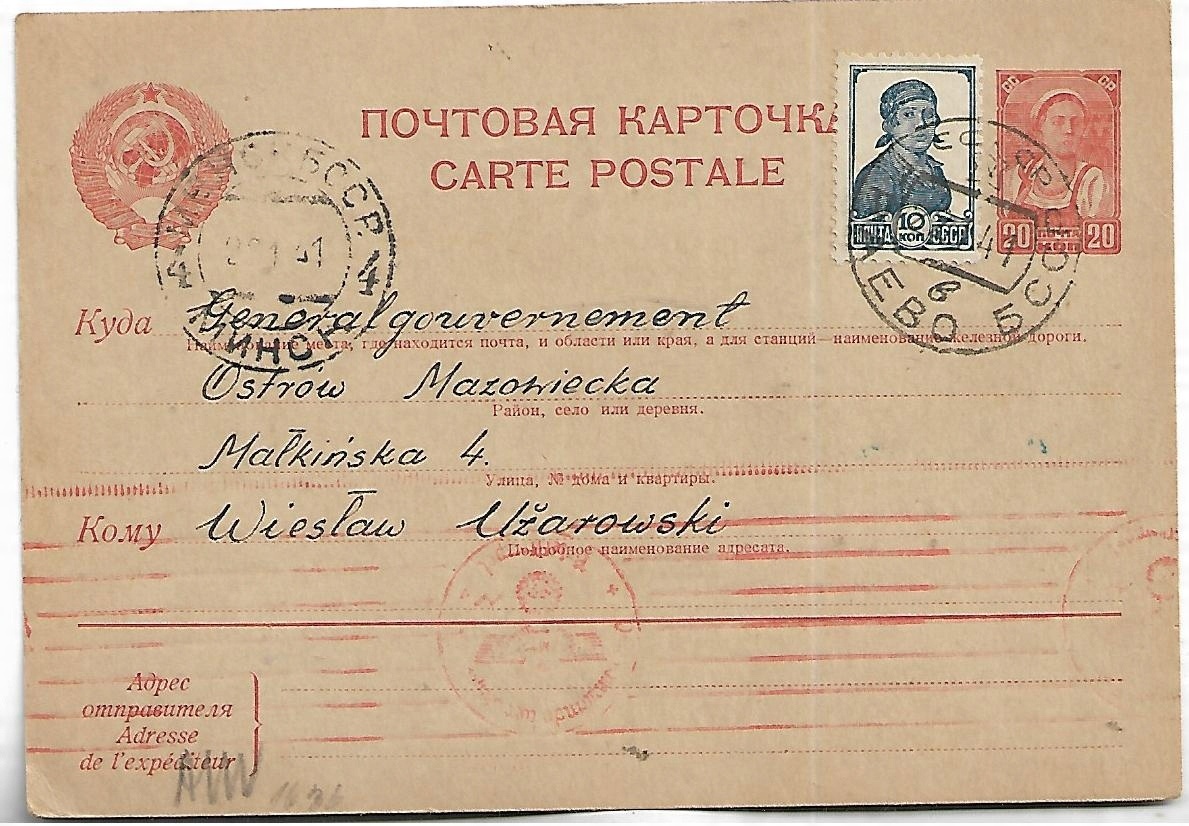 ПОЧТОВАЯ КАРТОЧК
CARTE POSTALE
СС СР
10 КОП
ПОЧТА СССР
20 ПОЧТА КОП 20
МИНСК БССР
4 4
МИНСК
41
ЕВО БССР
в
Куда Generalgouvernement
Наименование места, где находится почта, и области или края, а для станций—наименование железной дороги.
Ostrów Mazowiecka
Район, село или деревня.
Małkińska 4.
Улица, № дома и квартиры.
Кому Wiesław Użarowski
Подробное наименование адресата.
Адрес
отправителя
Adresse
de l'expéditeur